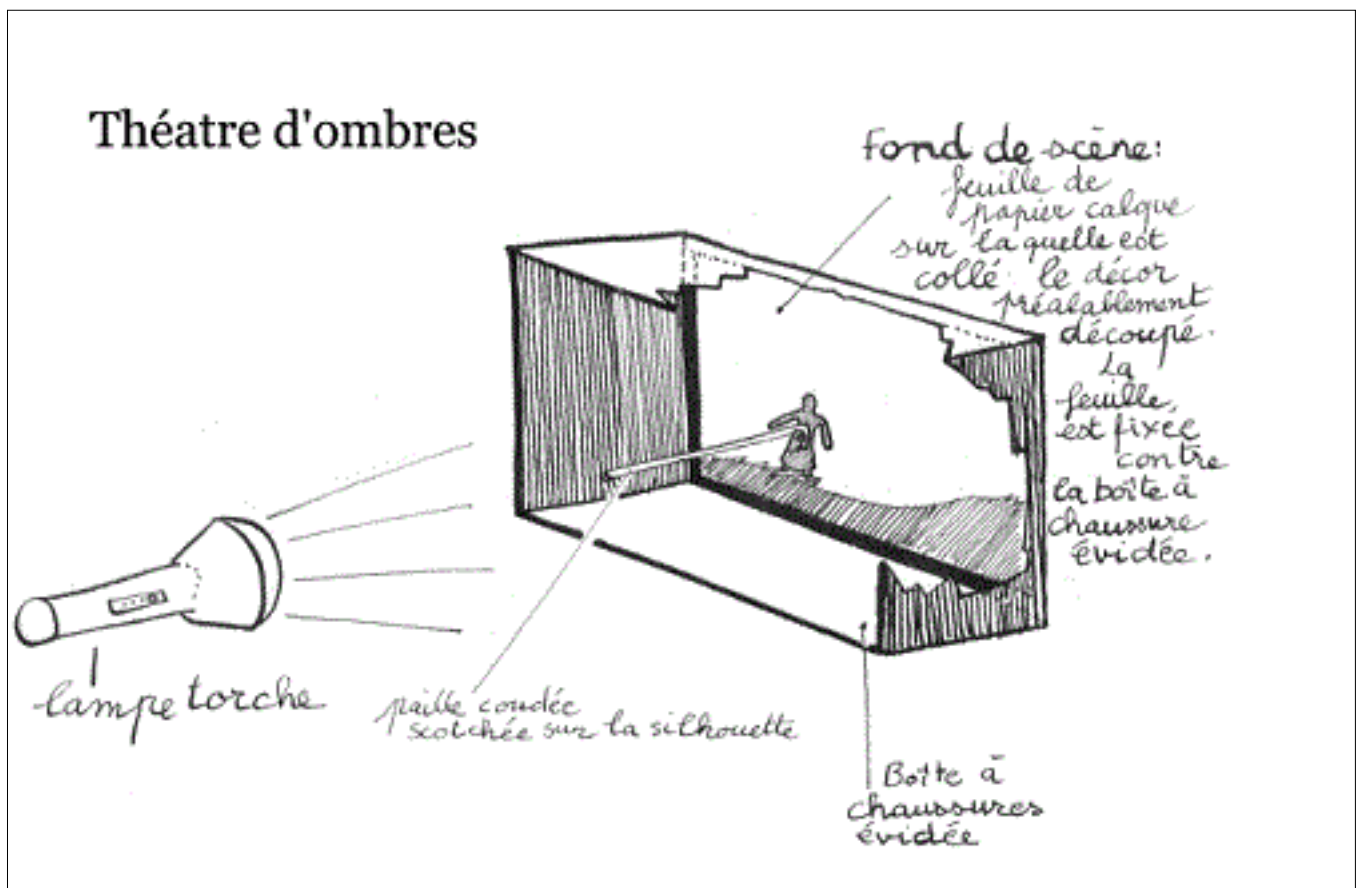 Théatre d'ombres
fond de scène:
feuille de
papier calque
sur laquelle est
collé le décor
préalablement
découpé.
La
feuille,
est fixée
contre
la boîte à
chaussure
évidée.
lampe torche
paille coudée
scotchée sur la silhouette
Boîte à
chaussures
évidée